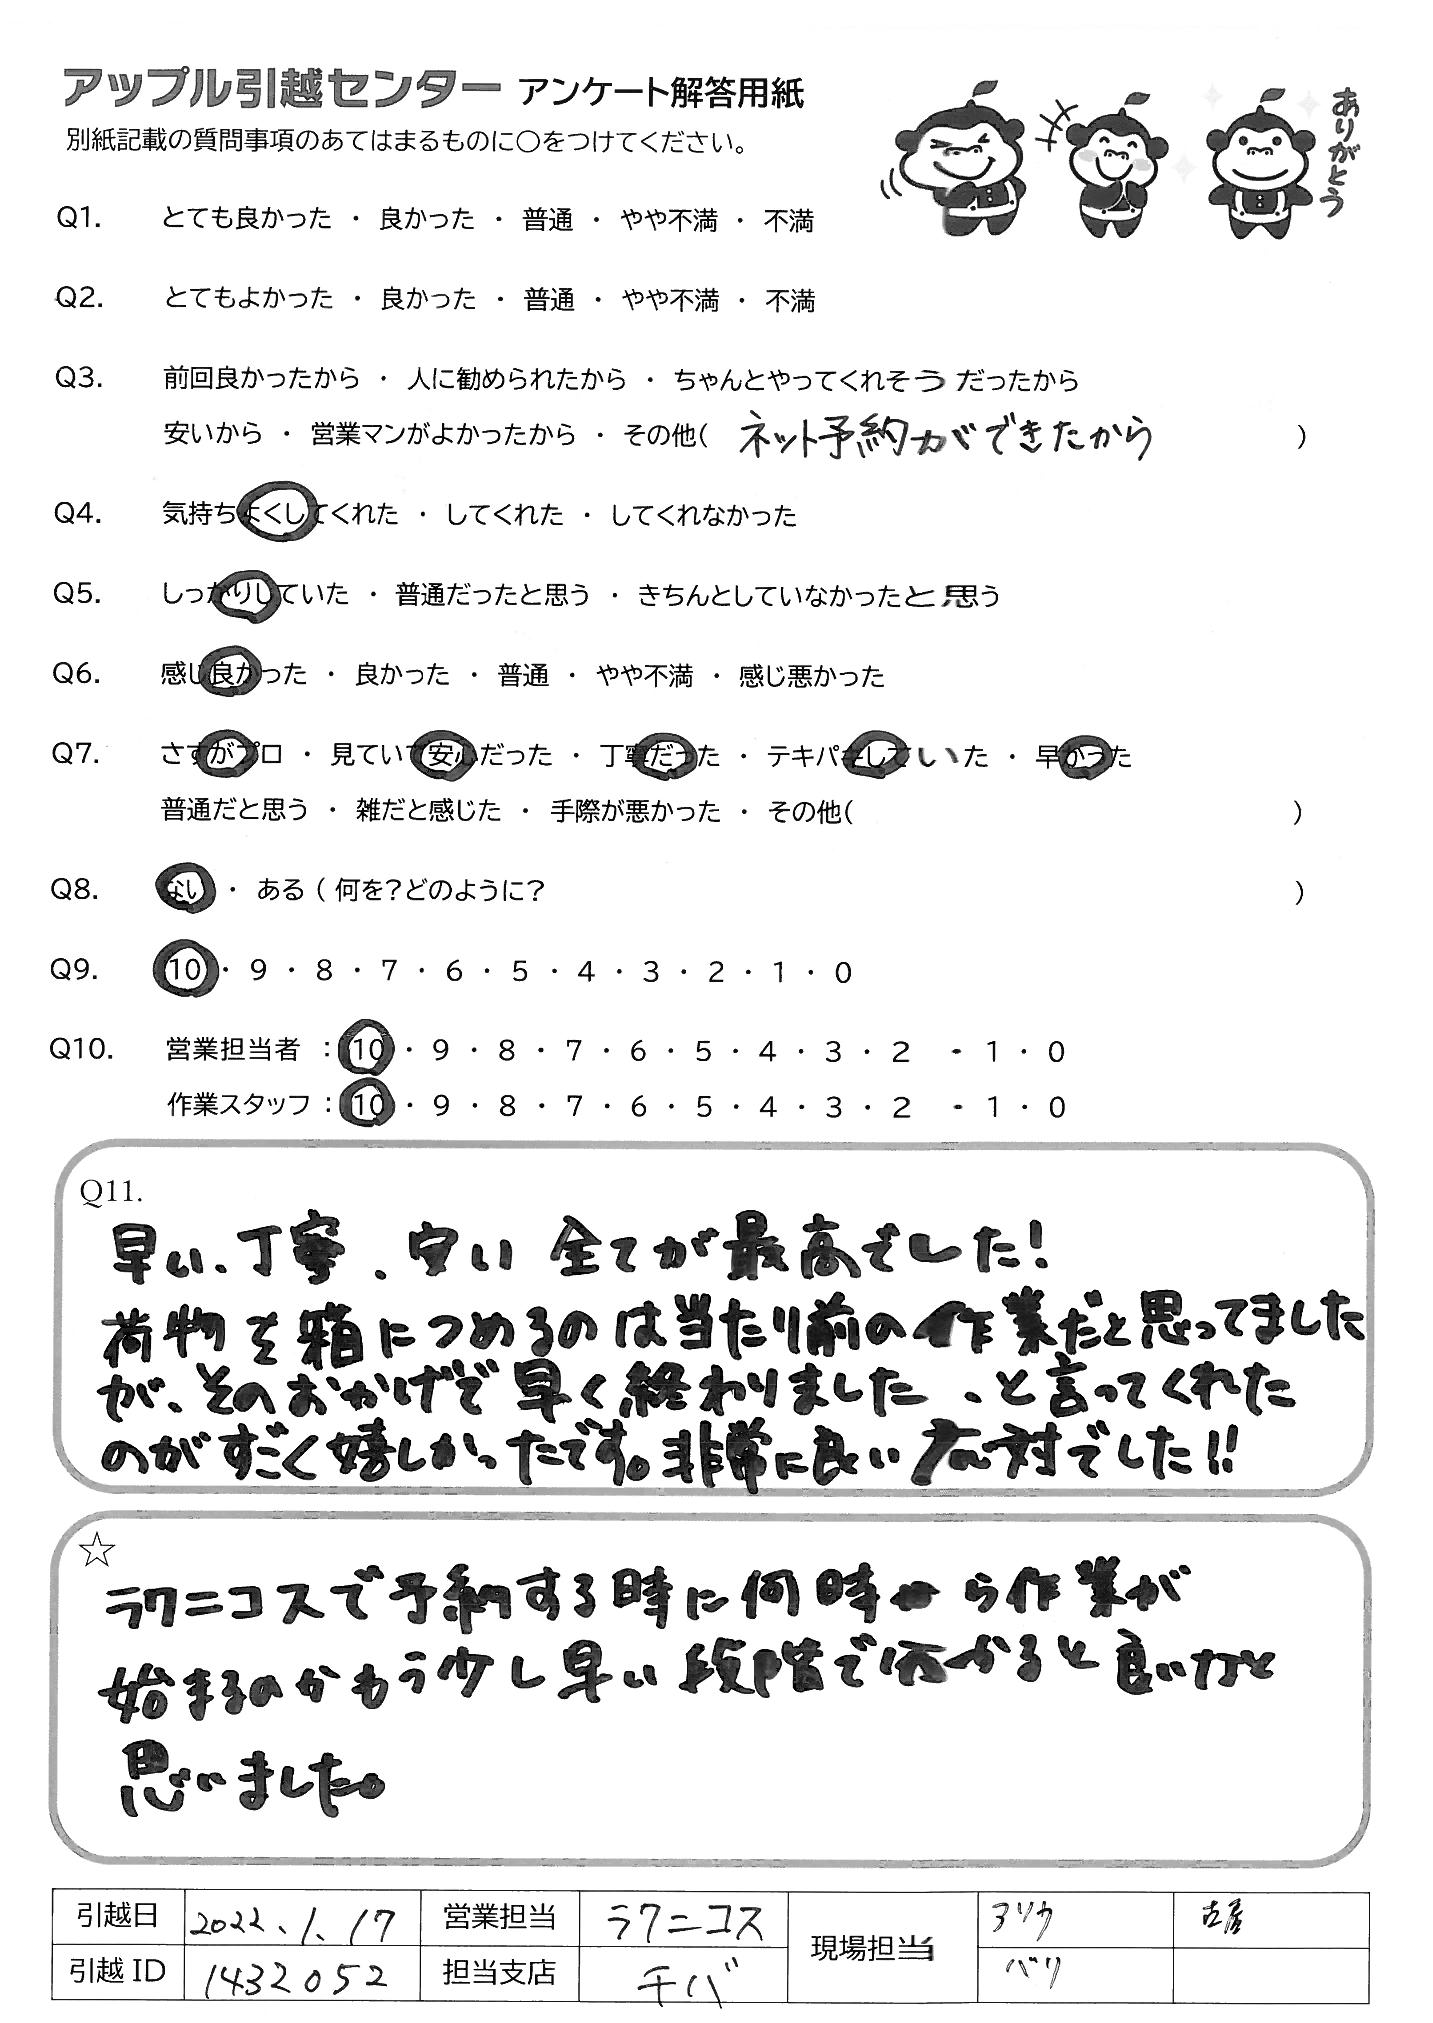 アップル引越センター アンケート解答用紙
ありがとう
別紙記載の質問事項のあてはまるものに〇をつけてください。
Q1. とても良かった ・ 良かった ・ 普通 ・ やや不満 ・ 不満
Q2. とてもよかった ・ 良かった ・ 普通 ・ やや不満 ・ 不満
Q3. 前回良かったから ・ 人に勧められたから ・ ちゃんとやってくれそうだったから
安いから ・ 営業マンがよかったから ・ その他( ネット予約ができたから )
Q4. 気持ちよくしてくれた ・ してくれた ・ してくれなかった
Q5. しっかりしていた ・ 普通だったと思う ・ きちんとしていなかったと思う
Q6. 感じ良かった ・ 良かった ・ 普通 ・ やや不満 ・ 感じ悪かった
Q7. さすがプロ ・ 見ていて安心だった ・ 丁寧だった ・ テキパキしていた ・ 早かった
普通だと思う ・ 雑だと感じた ・ 手際が悪かった ・ その他( )
Q8. ない ・ ある ( 何を?どのように? )
Q9. 10 ・ 9 ・ 8 ・ 7 ・ 6 ・ 5 ・ 4 ・ 3 ・ 2 ・ 1 ・ 0
Q10. 営業担当者 : 10 ・ 9 ・ 8 ・ 7 ・ 6 ・ 5 ・ 4 ・ 3 ・ 2 ・ 1 ・ 0
作業スタッフ : 10 ・ 9 ・ 8 ・ 7 ・ 6 ・ 5 ・ 4 ・ 3 ・ 2 ・ 1 ・ 0
Q11.
早い、丁寧、安い 全てが最高でした!
荷物を箱につめるのは当たり前の作業だと思ってました
が、そのおかげで早く終わりました、と言ってくれた
のがすごく嬉しかったです。非常に良い応対でした!!
☆
ラクニコスで予約する時に何時から作業が
始まるのかもう少し早い段階で分かると良いなと
思いました。
引越日 2022.1.17 営業担当 ラクニコス 現場担当 アソウ 古屋
引越ID 1432052 担当支店 チバ バリ